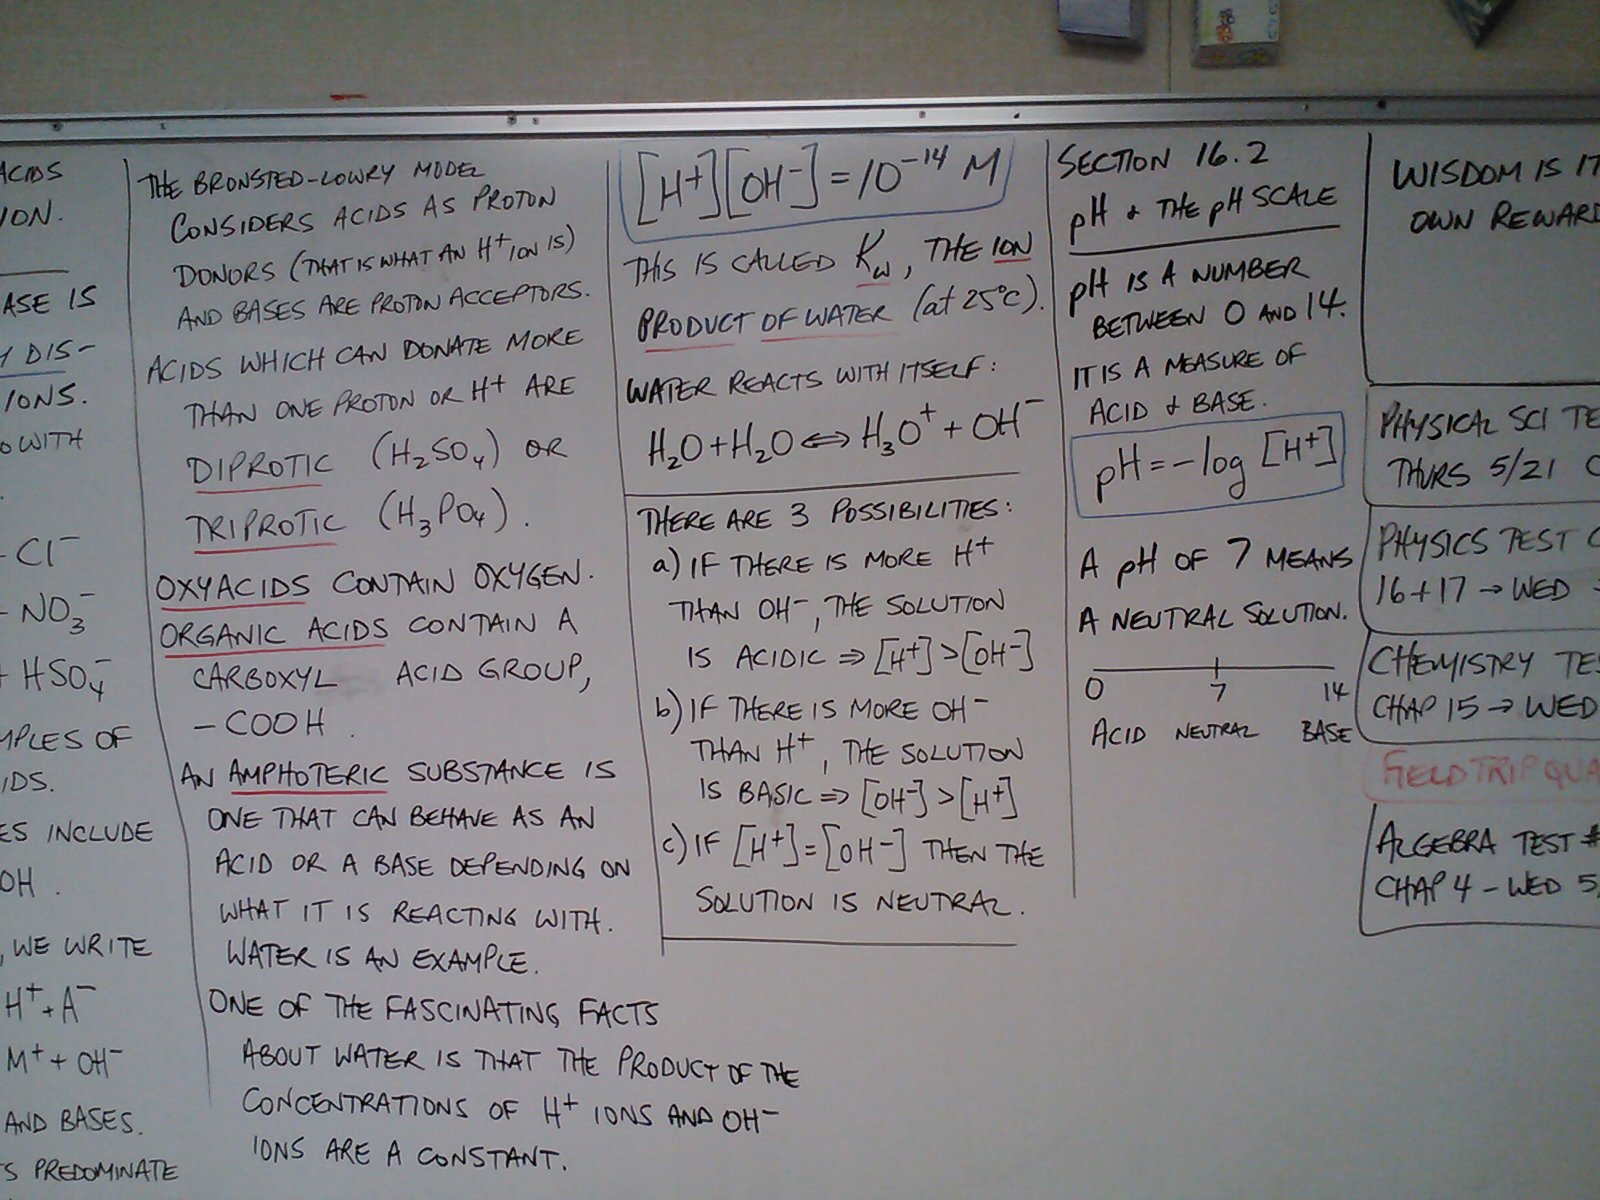 ACIDS
ION.
ASE IS
Y DIS-
IONS.
WITH
- Cl⁻
NO₃⁻
+ HSO₄⁻
MPLES OF
IDS.
ES INCLUDE
OH.
, WE WRITE
H⁺ + A⁻
M⁺ + OH⁻
AND BASES.
TS PREDOMINATE
THE BRONSTED-LOWRY MODEL
CONSIDERS ACIDS AS PROTON
DONORS (THAT IS WHAT AN H⁺ ION IS)
AND BASES ARE PROTON ACCEPTORS.
ACIDS WHICH CAN DONATE MORE
THAN ONE PROTON OR H⁺ ARE
DIPROTIC (H₂SO₄) OR
TRIPROTIC (H₃PO₄).
OXYACIDS CONTAIN OXYGEN.
ORGANIC ACIDS CONTAIN A
CARBOXYL ACID GROUP,
-COOH.
AN AMPHOTERIC SUBSTANCE IS
ONE THAT CAN BEHAVE AS AN
ACID OR A BASE DEPENDING ON
WHAT IT IS REACTING WITH.
WATER IS AN EXAMPLE.
ONE OF THE FASCINATING FACTS
ABOUT WATER IS THAT THE PRODUCT OF THE
CONCENTRATIONS OF H⁺ IONS AND OH⁻
IONS ARE A CONSTANT.
[H⁺][OH⁻] = 10⁻¹⁴ M
THIS IS CALLED K_w, THE ION
PRODUCT OF WATER (at 25°C).
WATER REACTS WITH ITSELF:
H₂O + H₂O ⇔ H₃O⁺ + OH⁻
THERE ARE 3 POSSIBILITIES:
a) IF THERE IS MORE H⁺
THAN OH⁻, THE SOLUTION
IS ACIDIC ⇒ [H⁺] > [OH⁻]
b) IF THERE IS MORE OH⁻
THAN H⁺, THE SOLUTION
IS BASIC ⇒ [OH⁻] > [H⁺]
c) IF [H⁺] = [OH⁻] THEN THE
SOLUTION IS NEUTRAL.
SECTION 16.2
pH & THE pH SCALE
pH IS A NUMBER
BETWEEN 0 AND 14.
IT IS A MEASURE OF
ACID & BASE.
pH = -log [H⁺]
A pH OF 7 MEANS
A NEUTRAL SOLUTION.
0 7 14
ACID NEUTRAL BASE
WISDOM IS IT
OWN REWARD
PHYSICAL SCI TE
THURS 5/21 C
PHYSICS TEST C
16 + 17 → WED
CHEMISTRY TES
CHAP 15 → WED
FIELD TRIP QUA
ALGEBRA TEST #
CHAP 4 - WED 5/